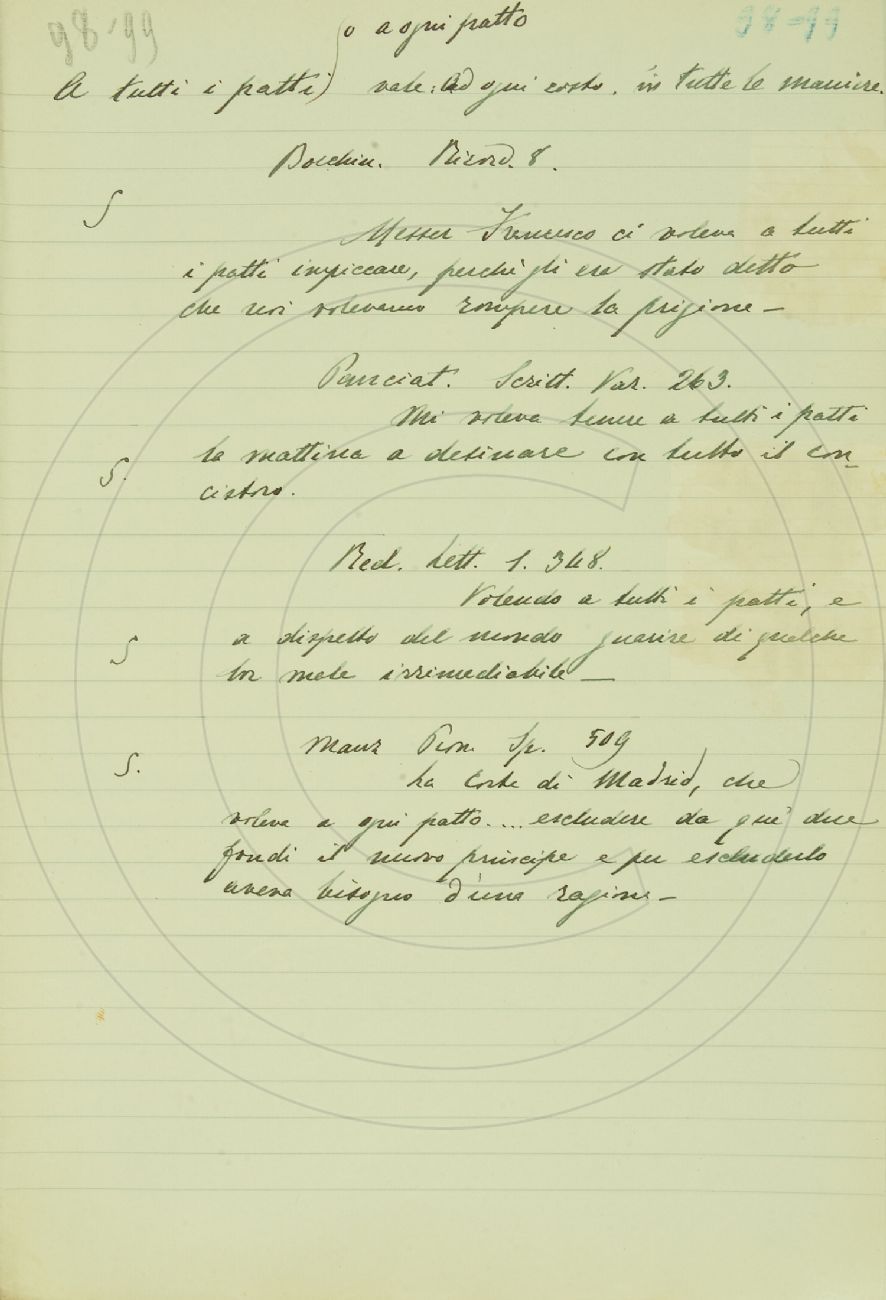 98-99
98=99
o a ogni patto
A tutti i patti) vale: Ad ogni costo. in tutte le maniere.
Bocchin. Ricord. 8.
S
Messer Francesco ci voleva a tutti
i patti impiccare, perchè gli era stato detto
che noi volevamo rompere la prigione —
Panciat. Scritt. Var. 263.
Mi voleva tenere a tutti i patti
la mattina a desinare con tutto il con-
S.
cistoro.
Red. Lett. 1. 348.
Volendo a tutti i patti, e
S
a dispetto del mondo guarire di qualche
lor male irrimediabile —
Manz Prom. Sp. 509
S.
La Corte di Madrid, che
voleva a ogni patto.... escludere da que' due
feudi il nuovo principe e per escluderlo
aveva bisogno d'una ragione —